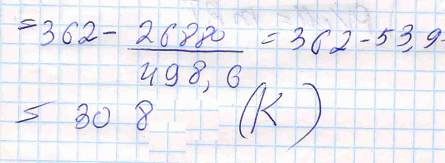 =362-26880/498,6=362-53,9
= 308 (К)